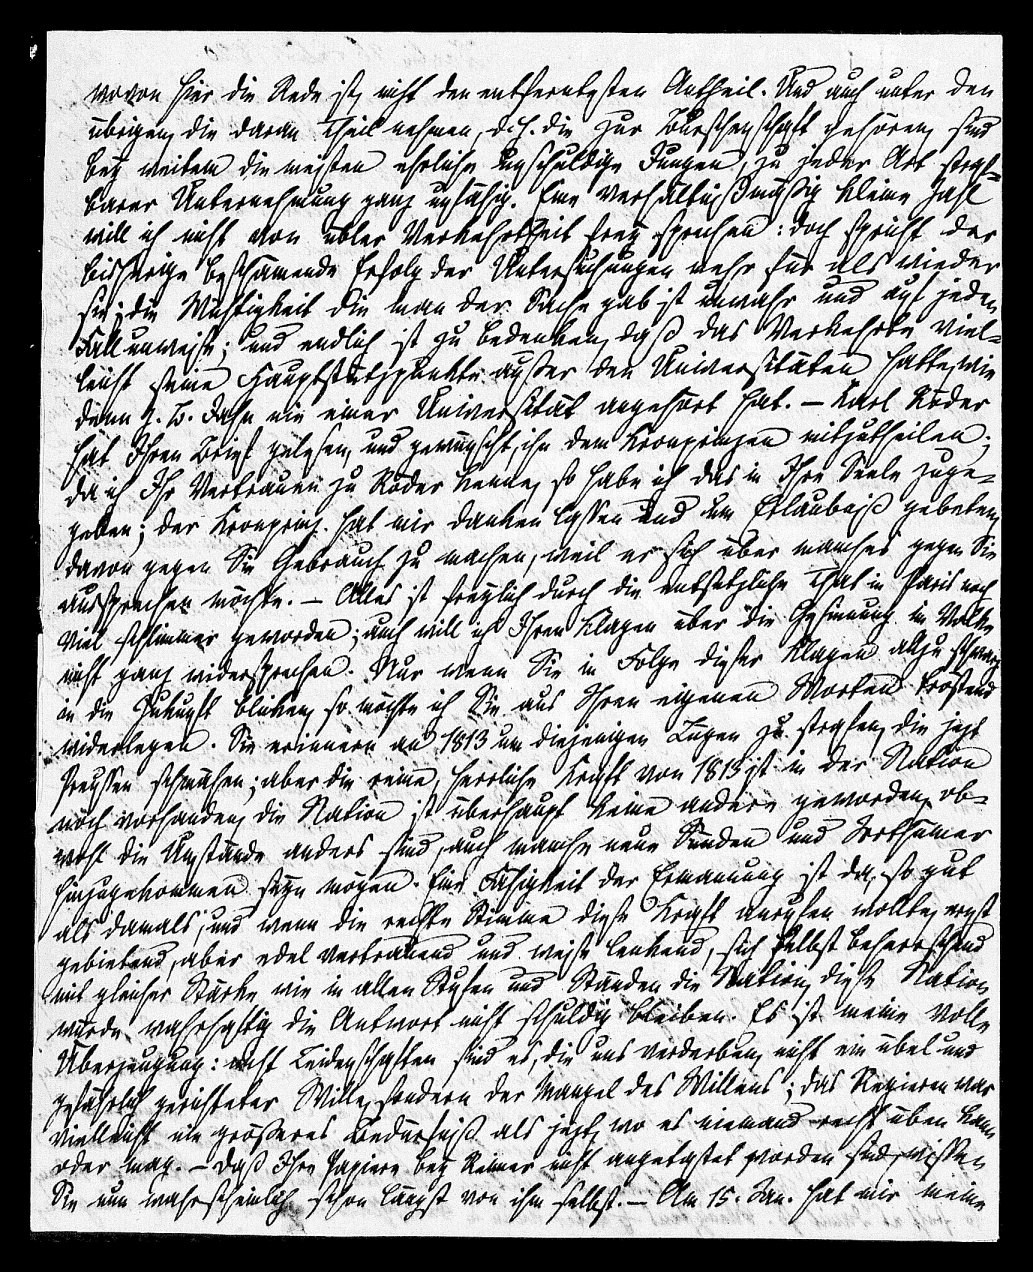 wovon hier die Rede ist, nicht den entferntesten Antheil. Und auch unter den
übrigen, die daran Theil nehmen, d. h. die zur Burschenschaft gehören, sind
bey weitem die meisten ehrliche unschuldige Jungen, zu jeder Art straf-
barer Unternehmung ganz unfähig. Eine verhältnißmäßig kleine Zahl
will ich nicht von übler Verkehrtheit frey sprechen: doch spricht der
bisherige beschämende Erfolg der Untersuchungen mehr für als wieder
sie; die Wichtigkeit die man der Sache gab ist unwahr und auf jeden
Fall unweise; und endlich ist zu bedenken, daß das Verkehrte viel-
leicht seine Hauptstützpunkte außer den Universitäten hatte, wie
denn z. B. Jahn nie einer Universität angehört hat. – Karl Röder
hat Ihren Brief gelesen, und gewünscht, ihn dem Kronprinzen mitzutheilen;
da ich Ihr Vertrauen zu Röder kenne, so habe ich das in Ihre Seele zuge-
geben; der Kronprinz hat mir danken lassen und um Erlaubniß gebeten,
davon gegen Sie Gebrauch zu machen, weil er sich über manches gegen Sie
aussprechen möchte. – Alles ist freylich durch die entsetzliche That in Paris noch
viel schlimmer geworden; auch will ich Ihren Klagen über die Gesinnung im Volke
nicht ganz widersprechen. Nur wenn Sie in Folge dieser Klagen allzu schwarz
in die Zukunft blicken, so möchte ich Sie aus Ihren eigenen Worten tröstend
widerlegen. Sie erinnern an 1813 um diejenigen Lügen zu strafen, die jetzt
Preussen schmähen; aber die reine, herrliche Kraft von 1813 ist in der Nation
noch vorhanden, die Nation ist überhaupt keine andere geworden, ob-
wohl die Umstände anders sind, auch manche neue Sünden und Irrthümer
hinzugekommen seyn mögen. Eine Fähigkeit der Ermannung ist da, so gut
als damals, und wenn die rechte Stimme diese Kraft anrufen wollte, ernst
gebietend, aber edel vertrauend und weise lenkend, sich selbst beherrschend
mit gleicher Stärke wie in allen Stufen und Ständen die Nation, diese Nation
würde wahrhaftig die Antwort nicht schuldig bleiben. Es ist meine volle
Überzeugung: nicht Leidenschaften sind es, die uns verderben, nicht ein übel und
gefährlich gerichteter Wille, sondern der Mangel des Willens; das Regieren war
vielleicht nie größeres Bedürfniß als jetzt, wo es niemand recht üben kann
oder mag. – Daß Ihre Papiere bey Reimer nicht angetastet worden sind, wissen
Sie nun wahrscheinlich schon längst von ihm selbst. – Am 15. Jan. hat mir meine